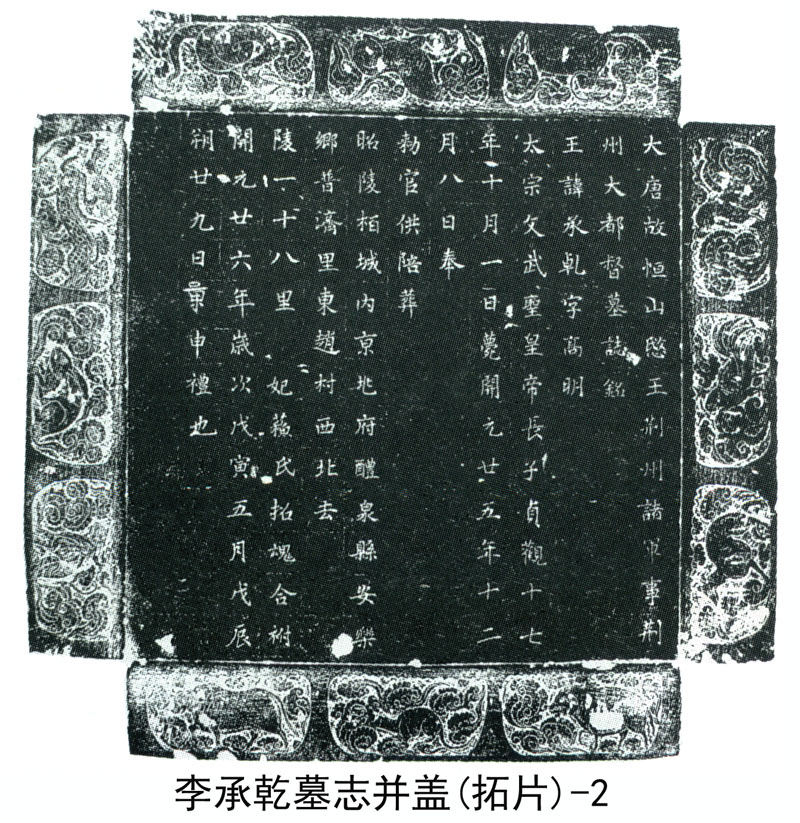 大唐故恒山愍王荆州諸軍事荆
州大都督墓誌銘
王諱承乹字高明
太宗文武聖皇帝長子貞觀十七
年十月一日薨開元廿五年十二
月八日奉
勑官供陪葬
昭陵栢城内京兆府醴泉縣安樂
鄉普濟里東趙村西北去
陵一十八里 妃蘓氏招魂合祔
開元廿六年歲次戊寅五月戊辰
朔廿九日景申禮也
李承乾墓志并盖(拓片)-2